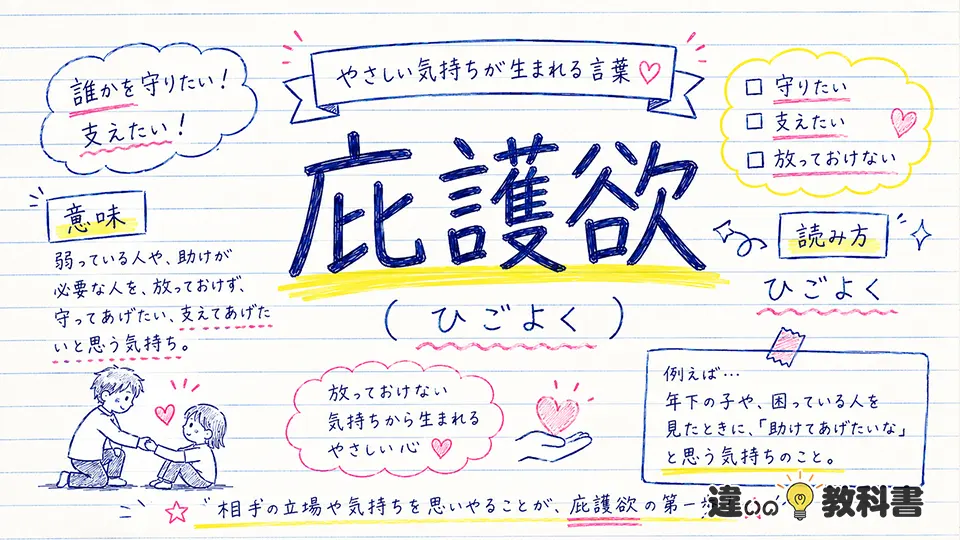 やさしい気持ちが生まれる言葉
誰かを守りたい！
支えたい！
守りたい
支えたい
放っておけない
庇護欲
（ひごよく）
意味
弱っている人や、助けが
必要な人を、放っておけず、
守ってあげたい、支えてあげた
いと思う気持ち。
読み方
ひごよく
放っておけない
気持ちから生まれる
やさしい心
例えば…
年下の子や、困っている人を
見たときに、「助けてあげたいな」
と思う気持ちのこと。
相手の立場や気持ちを思いやることが、庇護欲の第一
違いの教科書